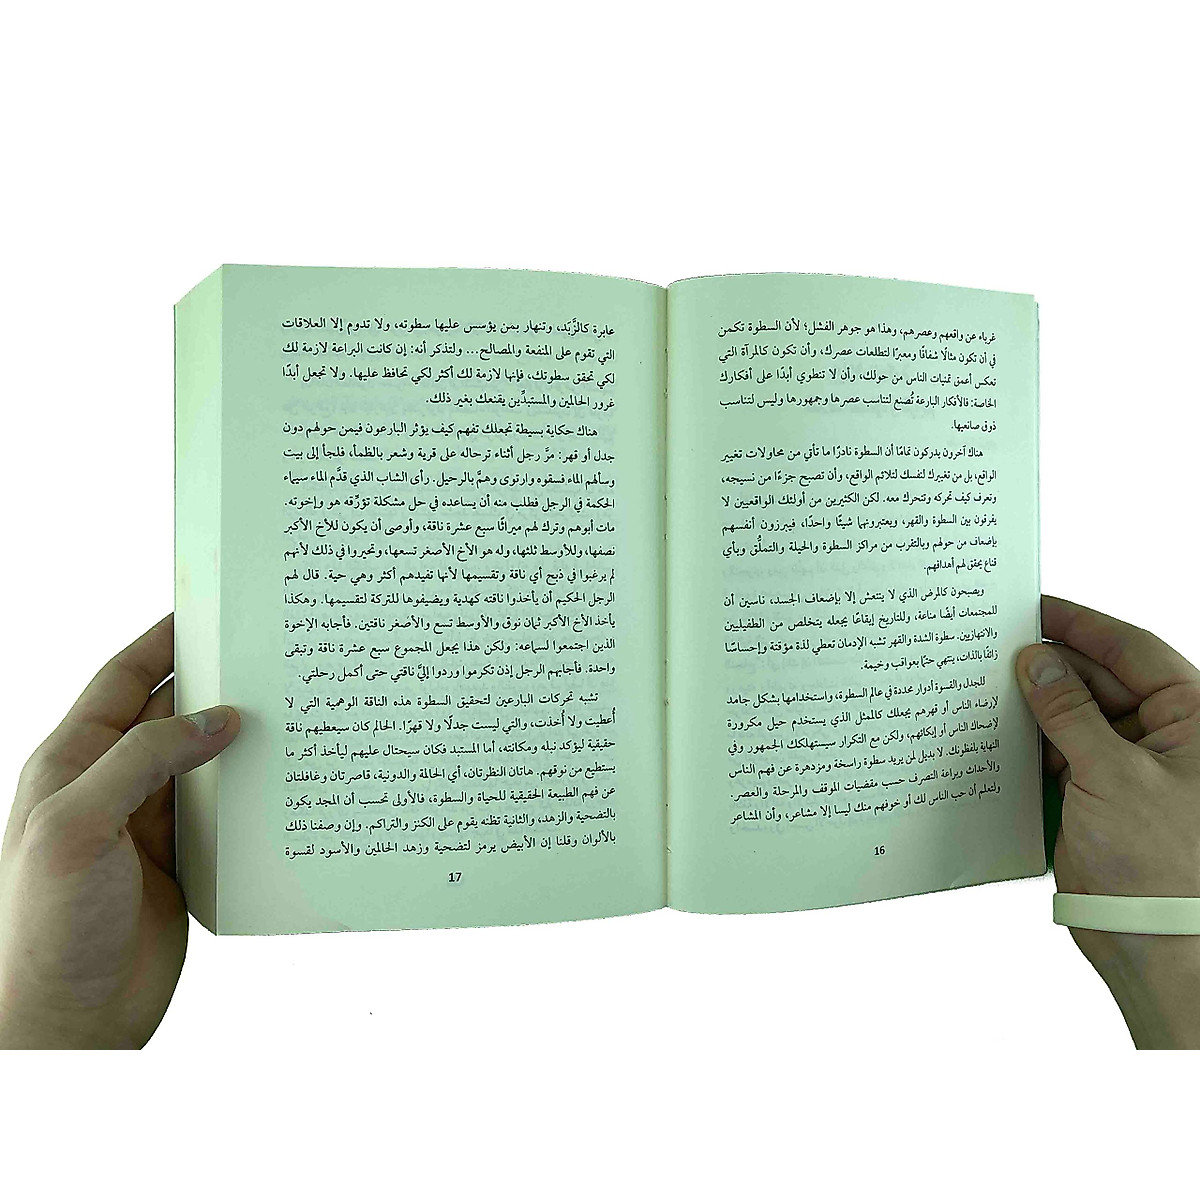 غرباء عن واقعهم وعصرهم، وهذا هو جوهر الفشل؛ لأن السطوة تكمن
في أن تكون مثالًا شفافًا ومعبرًا لتطلعات عصرك، وأن تكون كالمرآة التي
تعكس أعمق تمنيات الناس من حولك، وأن لا تنطوي أبدًا على أفكارك
الخاصة: فالأفكار البارعة تُصنع لتناسب عصرها وجمهورها وليس لتناسب
ذوق صانعيها.
هناك آخرون يدركون تمامًا أن السطوة نادرًا ما تأتي من محاولات تغيير
الواقع، بل من تغييرك لنفسك لتلائم الواقع، وأن تصبح جزءًا من نسيجه،
وتعرف كيف تحركه وتتحرك معه. لكن الكثيرين من أولئك الواقعيين لا
يفرقون بين السطوة والقهر، ويعتبرونهما شيئًا واحدًا، فيبرزون أنفسهم
بإضعاف من حولهم وبالتقرب من مراكز السطوة والحيلة والتملُّق وبأي
قناع يحقق لهم أهدافهم.
ويصبحون كالمرض الذي لا ينتعش إلا بإضعاف الجسد، ناسين أن
للمجتمعات أيضًا مناعة، وللتاريخ إيقاعًا يجعله يتخلص من الطفيليين
والانتهازيين. سطوة الشدة والقهر تشبه الإدمان تعطي لذة مؤقتة وإحساسًا
زائفًا بالذات، ينتهي حتمًا بعواقب وخيمة.
للجدل والقسوة أدوار محددة في عالم السطوة، واستخدامها بشكل جامد
لإرضاء الناس أو قهرهم يجعلك كالممثل الذي يستخدم حيل مكرورة
لإضحاك الناس أو إبكائهم، ولكن مع التكرار سيستهلكك الجمهور وفي
النهاية يلفظونك. لا بديل لمن يريد سطوة راسخة ومزدهرة عن فهم الناس
والأحداث وبراعة التصرف حسب مقضيات الموقف والمرحلة والعصر.
ولتعلم أن حب الناس لك أو خوفهم منك ليسا إلا مشاعر، وأن المشاعر
16
عابرة كالزَّبَد، وتنهار بمن يؤسس عليها سطوته، ولا تدوم إلا العلاقات
التي تقوم على المنفعة والمصالح... ولتذكر أنه: إن كانت البراعة لازمة لك
لكي تحقق سطوتك، فإنها لازمة لك أكثر لكي تحافظ عليها. ولا تجعل أبدًا
غرور الحالمين والمستبدِّين يقنعك بغير ذلك.
هناك حكاية بسيطة تجعلك تفهم كيف يؤثر البارعون فيمن حولهم دون
جدل أو قهر: مرَّ رجل أثناء ترحاله على قرية وشعر بالظمأ، فلجأ إلى بيت
وسألهم الماء فسقوه وارتوى وهمَّ بالرحيل. رأى الشاب الذي قدَّم الماء سيماء
الحكمة في الرجل فطلب منه أن يساعده في حل مشكلة تؤرِّقه هو وإخوته.
مات أبوهم وترك لهم ميراثًا سبع عشرة ناقة، وأوصى أن يكون للأخ الأكبر
نصفها، وللأوسط ثلثها، وله هو الأخ الأصغر تسعها، وتحيروا في ذلك لأنهم
لم يرغبوا في ذبح أي ناقة وتقسيمها لأنها تفيدهم أكثر وهي حية. قال لهم
الرجل الحكيم أن يأخذوا ناقته كهدية ويضيفوها للتركة لتقسيمها. وهكذا
يأخذ الأخ الأكبر ثمان نوق والأوسط تسع والأصغر ناقتين. فأجابه الإخوة
الذين اجتمعوا لسماعه: ولكن هذا يجعل المجموع سبع عشرة ناقة وتبقى
واحدة. فأجابهم الرجل إذن تكرموا وردوا إليَّ ناقتي حتى أكمل رحلتي.
تشبه تحركات البارعين لتحقيق السطوة هذه الناقة الوهمية التي لا
أُعطيت ولا أُخذت، والتي ليست جدلًا ولا قهرًا. الحالم كان سيعطيهم ناقة
حقيقية ليؤكد نبله ومكانته، أما المستبد فكان سيحتال عليهم ليأخذ أكثر ما
يستطيع من نوقهم. هاتان النظرتان، أي الحالمة والدونية، قاصرتان وغافلتان
عن فهم الطبيعة الحقيقية للحياة والسطوة، فالأولى تحسب أن المجد يكون
بالتضحية والزهد، والثانية تظنه يقوم على الكنز والتراكم. وإن وصفنا ذلك
بالألوان وقلنا إن الأبيض يرمز لتضحية وزهد الحالمين والأسود لقسوة
17